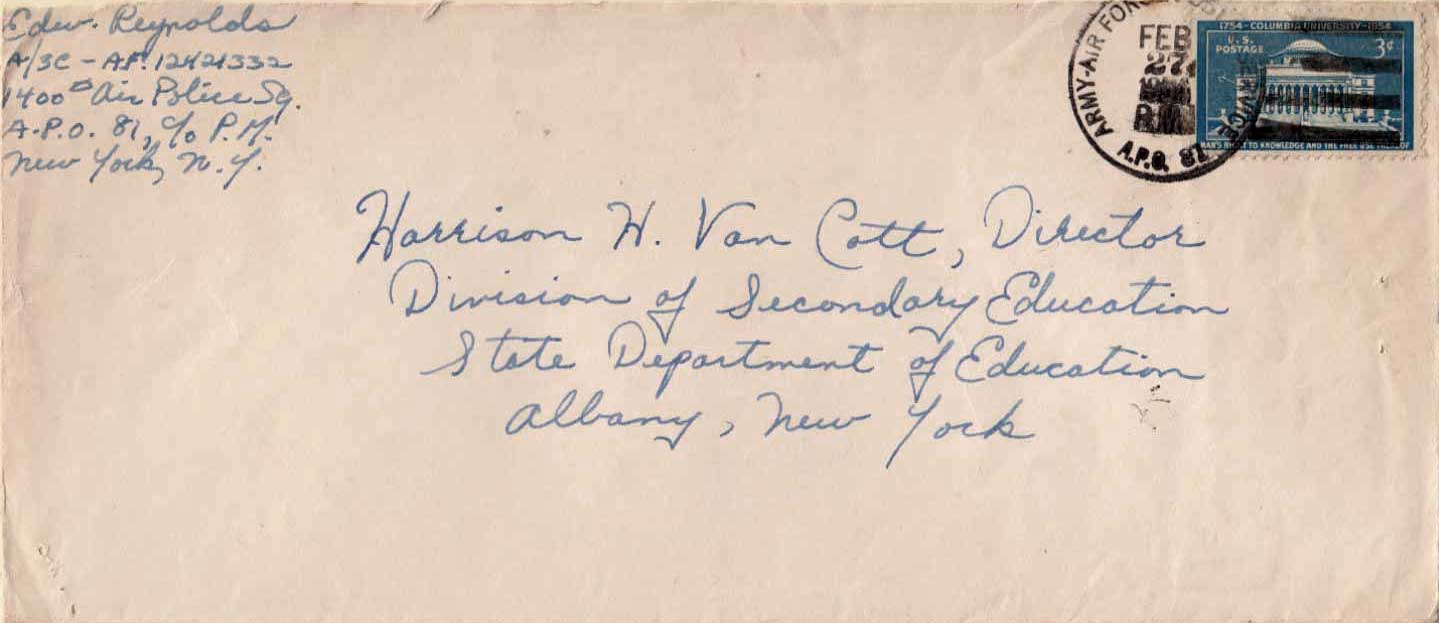 Edw. Reynolds
A/3C - AF. 12421332
1400th Air Police Sq.
A.P.O. 81, c/o P.M.
New York, N.Y.
ARMY-AIR FORCE
FEB
27
A.P.O. 81
1754-COLUMBIA UNIVERSITY-1954
U.S.
POSTAGE
3¢
MAN'S RIGHT TO KNOWLEDGE AND THE FREE USE THEREOF
Harrison H. Van Cott, Director
Division of Secondary Education
State Department of Education
Albany, New York